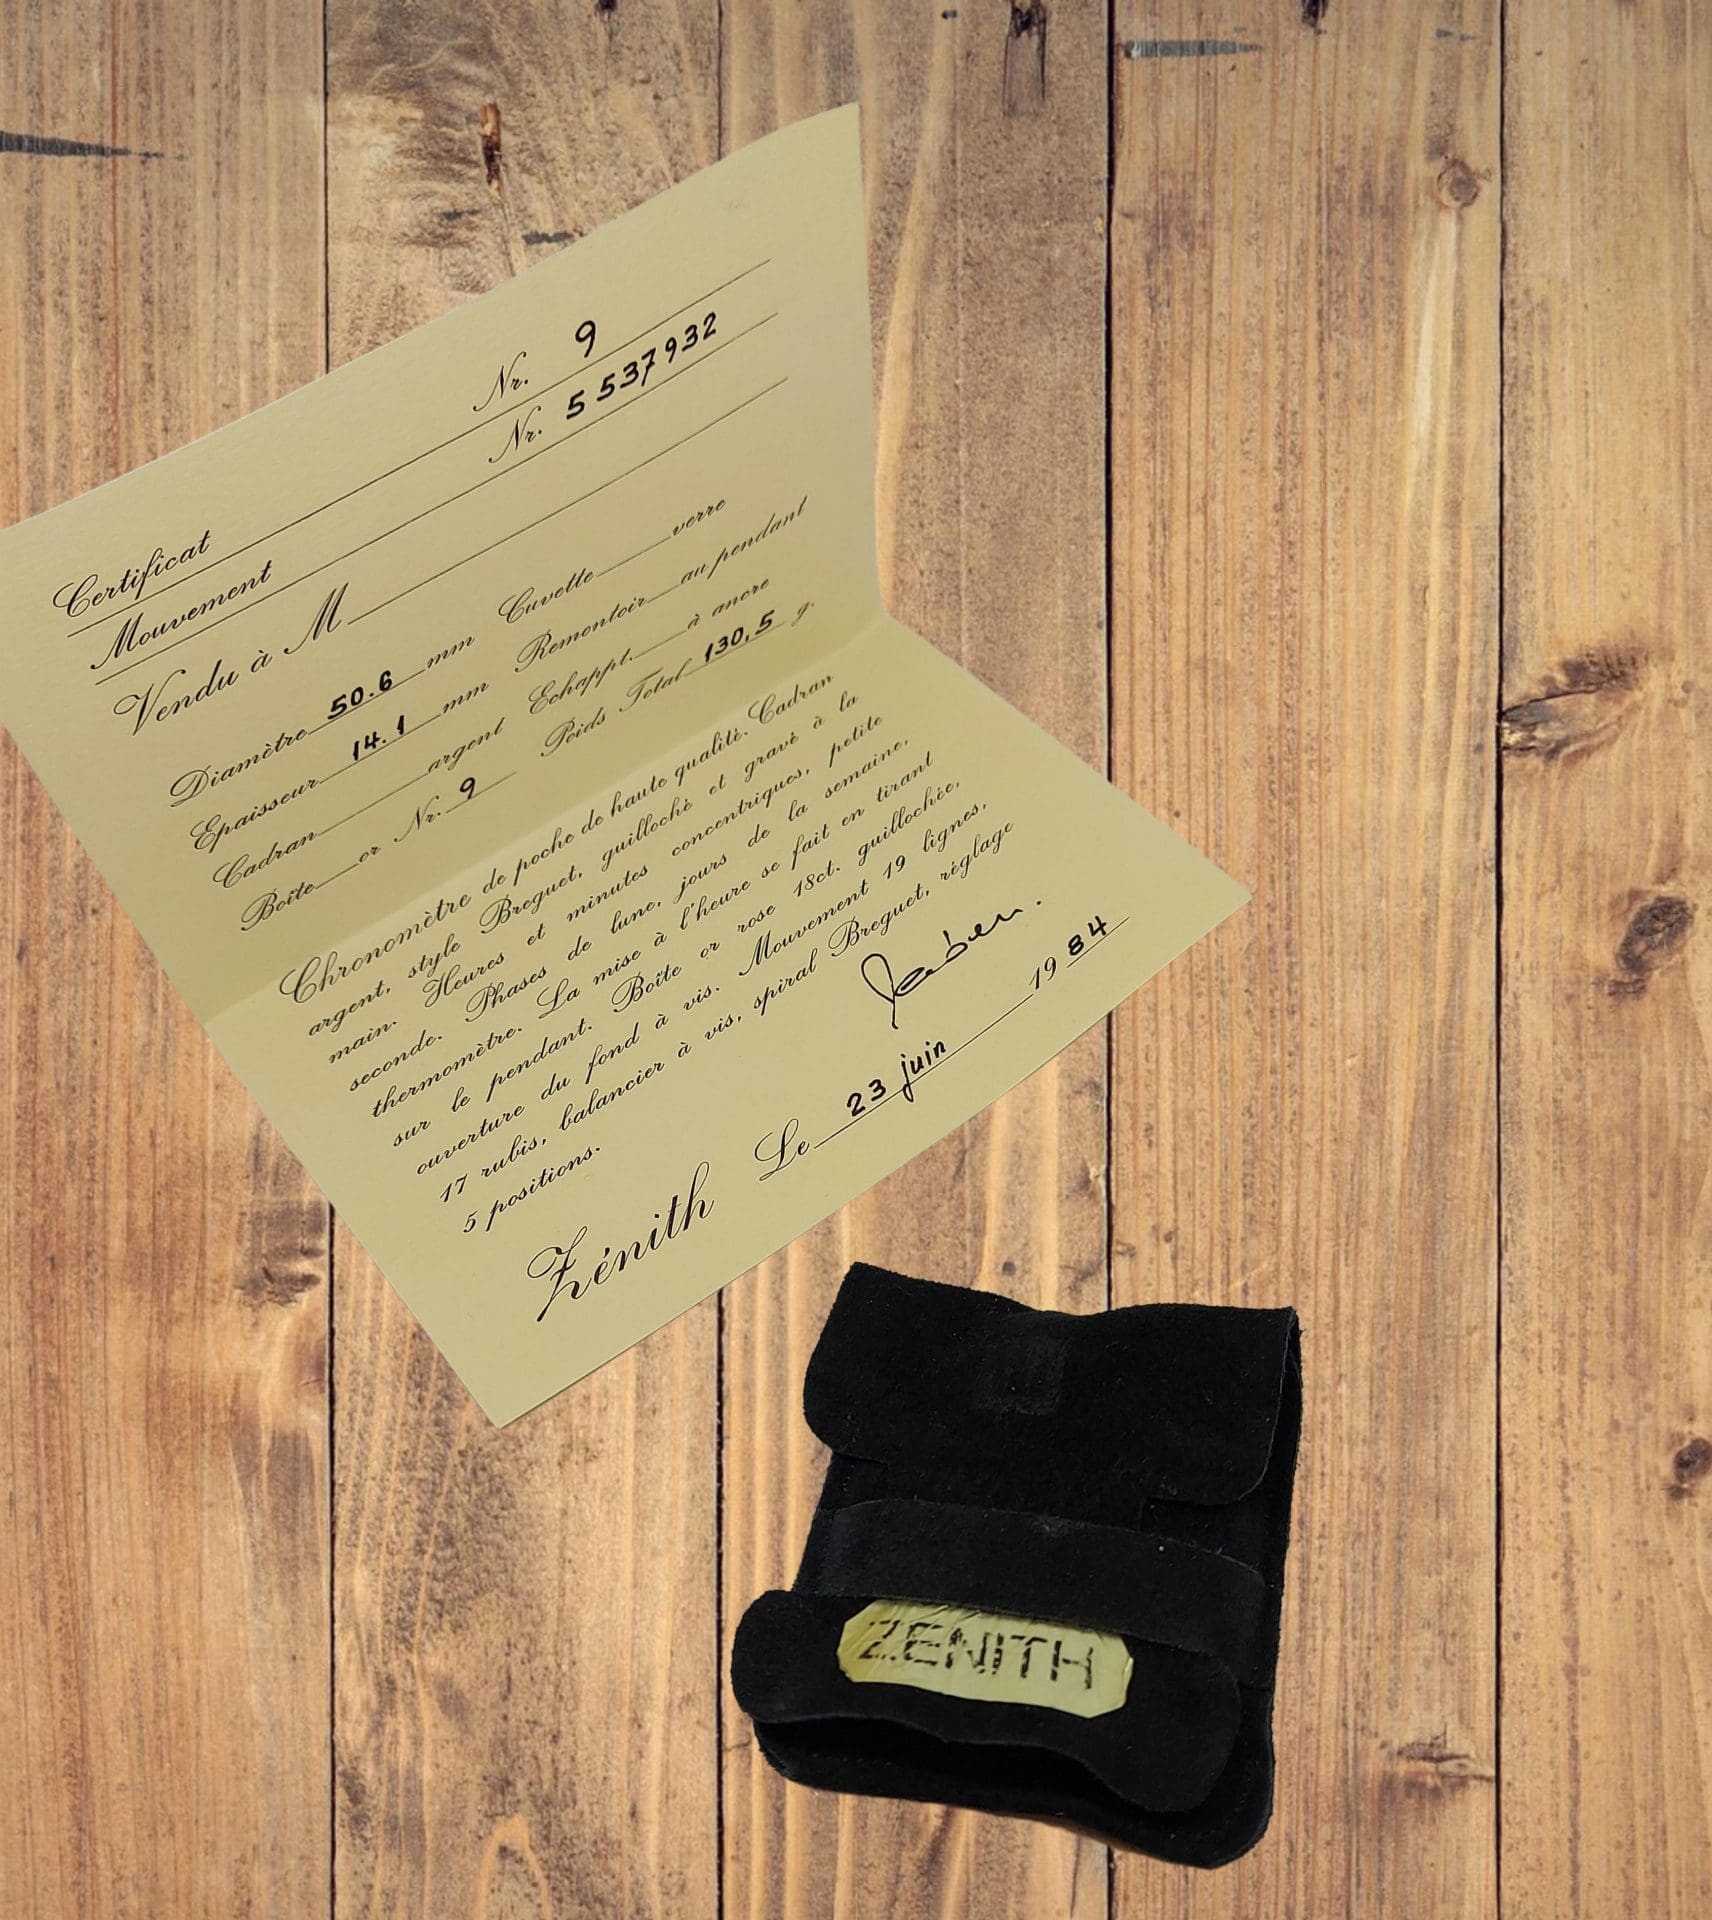 Certificat Nr. 9
Mouvement Nr. 5 537932
Vendu à M
Diamètre 50.6 mm Cuvette verre
Epaisseur 14.1 mm Remontoir au pendant
Cadran argent Echappt. à ancre
Boîte or Nr. 9 Poids Total 130,5 g.
Chronomètre de poche de haute qualité. Cadran
argent, style Breguet, guilloché et gravé à la
main. Heures et minutes concentriques, petite
seconde. Phases de lune, jours de la semaine,
thermomètre. La mise à l'heure se fait en tirant
sur le pendant. Boîte or rose 18ct. guillochée,
ouverture du fond à vis. Mouvement 19 lignes,
17 rubis, balancier à vis, spiral Breguet, réglage
5 positions.
Zénith Le 23 juin 1984
ZENITH